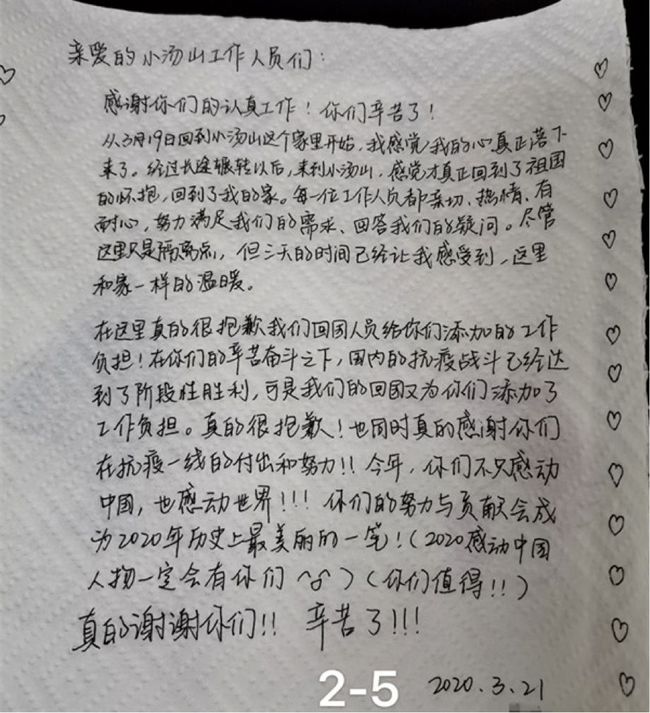 亲爱的小汤山工作人员们：
感谢你们的认真工作！你们辛苦了！
从3月19日回到小汤山这个家里开始，我感觉我的心真正落下
来了。经过长途辗转以后，来到小汤山，感觉才真正回到了祖国
的怀抱，回到了我的家。每一位工作人员都亲切、热情、有
耐心，努力满足我们的需求、回答我们的疑问。尽管
这里只是隔离点，但三天的时间已经让我感受到，这里
和家一样的温暖。
在这里真的很抱歉我们回国人员给你们添加的工作
负担！在你们的辛苦奋斗之下，国内的抗疫战斗已经达
到了阶段性胜利，可是我们的回国又为你们添加了
工作负担。真的很抱歉！也同时真的感谢你们
在抗疫一线的付出和努力!! 今年，你们不只感动
中国，也感动世界!!! 你们的努力与贡献会成
为2020年历史上最美丽的一笔！(2020感动中国
人物一定会有你们 ) (你们值得!!)
真的谢谢你们!! 辛苦了!!!
2-5 2020.3.21